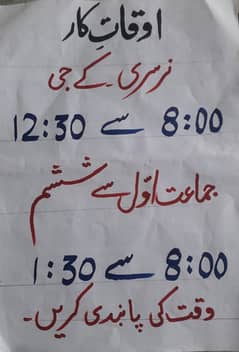 اوقاتِ کار
نرسری۔ کے جی
8:00 سے 12:30
جماعت اوّل سے ششم
8:00 سے 1:30
وقت کی پابندی کریں۔